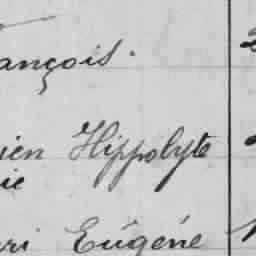 ançois.
ien Hippolyte
ie
ri Eugéne